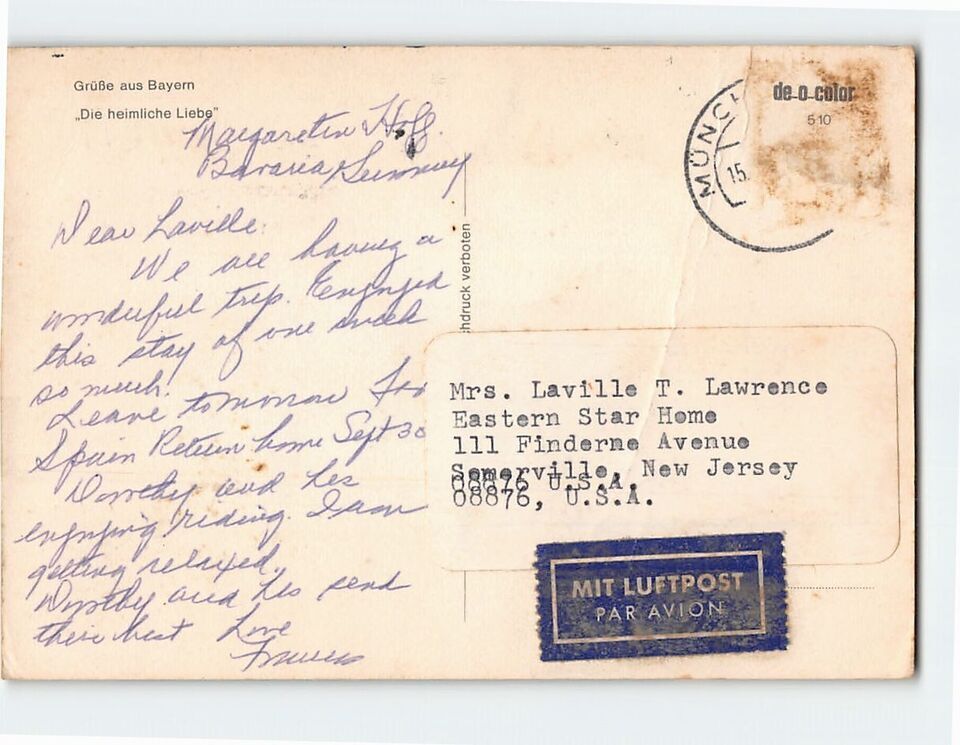 Grüße aus Bayern
„Die heimliche Liebe"
Margareten Hoff.
Bavaria Germany
Dear Laville:
We are having a
wonderful trip. Enjoyed
this stay of one week
so much.
Leave tomorrow for
Spain Return home Sept 30
Dorothy and Les
enjoying riding. I am
getting relaxed.
Dorothy and Les send
their best Love
Frances
hdruck verboten
MÜNCH
15.
de-o-color
510
Mrs. Laville T. Lawrence
Eastern Star Home
111 Finderne Avenue
Somerville, New Jersey
08876 U.S.A.
08876, U.S.A.
MIT LUFTPOST
PAR AVION